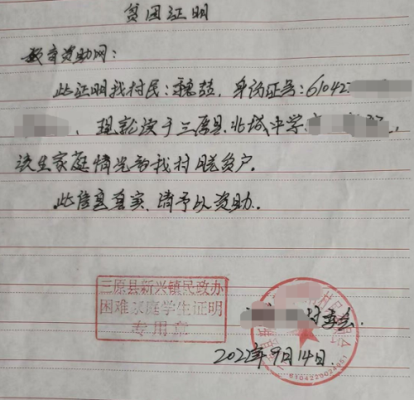 贫困证明
教育资助网：
此证明我村民：穆喆，身份证号：61042
，现就读于三原县北城中学
该生家庭情况为我村脱贫户。
此信息真实，请予以资助。
三原县新兴镇民政办
困难家庭学生证明
专用章
村委会
2021年9月14日